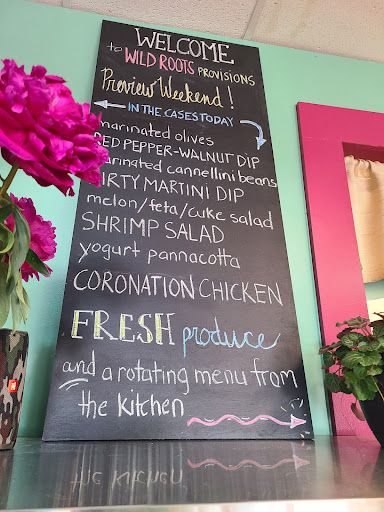 WELCOME
to WILD ROOTS PROVISIONS
Preview Weekend!
IN THE CASES TODAY
marinated olives
RED PEPPER-WALNUT DIP
marinated cannellini beans
DIRTY MARTINI DIP
melon/feta/cuke salad
SHRIMP SALAD
yogurt pannacotta
CORONATION CHICKEN
FRESH produce
and a rotating menu from
the kitchen